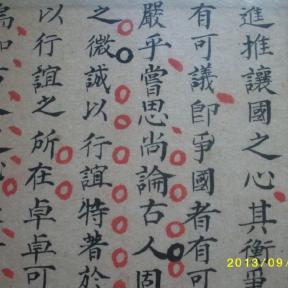 進推讓國之心其衡
有可議卽爭國者有可
嚴乎嘗思尚論古人固
之微誠以行誼特著於
以行誼之所在卓卓可
2013/09/